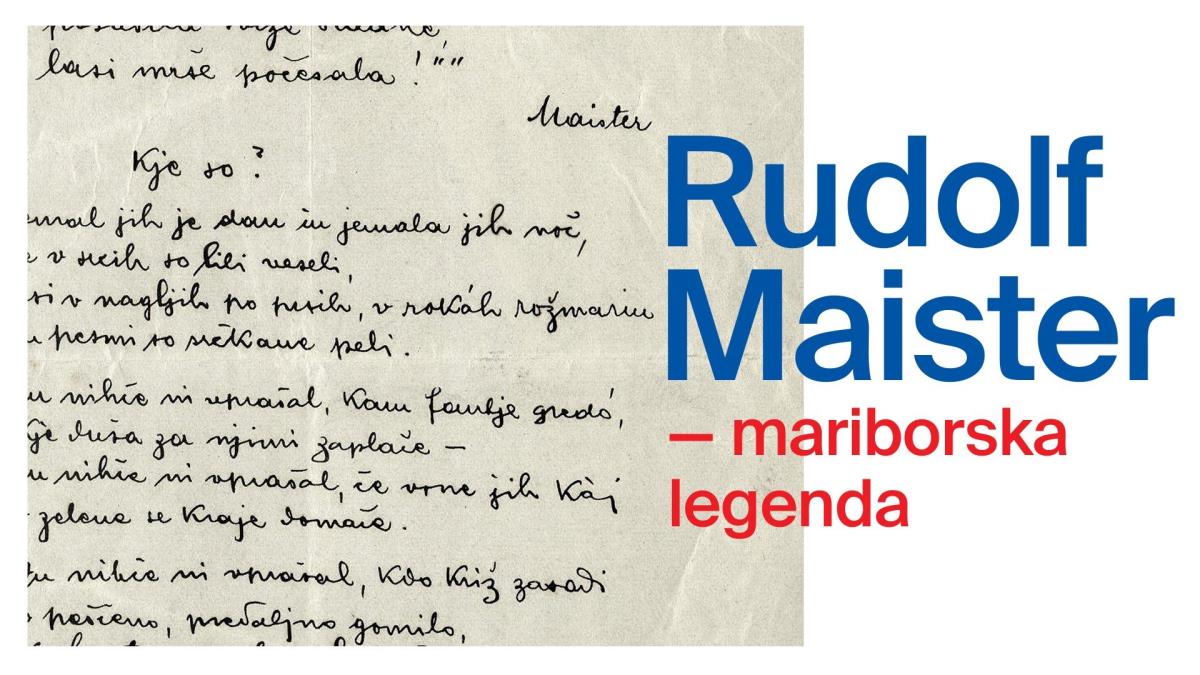 lasi mrše počesala !"""
Maister
Kje so ?
jemal jih je dan in jemala jih noč,
v srcih so bili veseli,
v nagljih po prsih, v rokáh rožmarin
pesmi so srčkane peli.
nihče ni vprašal, kam fantje gredó,
duša za njimi zaplače —
nihče ni vprašal, če vrne jih kàj
zelene se kraje domače.
nihče ni vprašal, kdo križ zasadi
peščeno, predaljno gomilo,
Rudolf
Maister
— mariborska
legenda